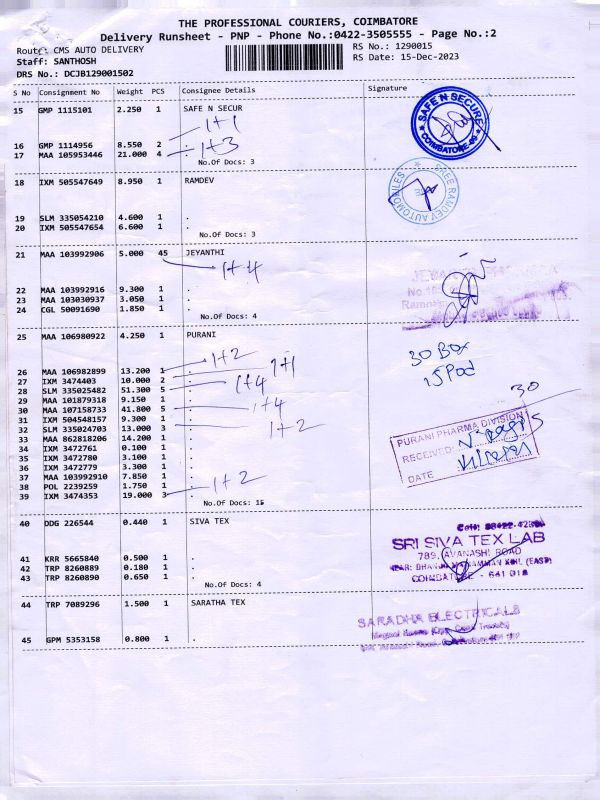 THE PROFESSIONAL COURIERS, COIMBATORE
Delivery Runsheet - PNP - Phone No.:0422-3505555 - Page No.:2
Route: CMS AUTO DELIVERY RS No.: 1290015
Staff: SANTHOSH RS Date: 15-Dec-2023
DRS No.: DCJB129001502
S No Consignment No Weight PCS Consignee Details Signature
15 GMP 1115101 2.250 1 SAFE N SECUR
SAFE N SECURE
COIMBATORE-09
1+1
16 GMP 1114956 8.550 2 .
17 MAA 105953446 21.000 4 . 1+3
No.Of Docs: 3
18 IXM 505547649 8.950 1 RAMDEV
SHREE RAMDEV AUTOMOBILES
19 SLM 335054210 4.600 1 .
20 IXM 505547654 6.600 1 .
No.Of Docs: 3
21 MAA 103992906 5.000 45 JEYANTHI
1+4
22 MAA 103992916 9.300 1 .
23 MAA 103030937 3.050 1 .
24 CGL 50091690 1.850 1 .
No.Of Docs: 4
25 MAA 106980922 4.250 1 PURANI
30 BOX
15 Pod
1+2
26 MAA 106982899 13.200 1 .
27 IXM 3474403 10.000 2 . 1+1
28 SLM 335025482 51.300 5 . 1+4
29 MAA 101879318 9.150 1 .
30 MAA 107158733 41.800 5 . 1+4
31 IXM 504548157 9.300 1 .
32 SLM 335024703 13.000 3 . 1+2
33 MAA 862818206 14.200 1 .
34 IXM 3472761 0.100 1 .
35 IXM 3472780 3.100 1 .
36 IXM 3472779 3.300 1 .
37 MAA 103992910 7.850 1 .
38 POL 2239259 1.750 1 . 1+2
39 IXM 3474353 19.000 3 .
No.Of Docs: 15
30
PURANI PHARMA DIVISION
RECEIVED:
DATE
40 DDG 226544 0.440 1 SIVA TEX
SRI SIVA TEX LAB
789, AVANASHI ROAD
COIMBATORE - 641 018
41 KRR 5665840 0.500 1 .
42 TRP 8260889 0.180 1 .
43 TRP 8260890 0.650 1 .
No.Of Docs: 4
44 TRP 7089296 1.500 1 SARATHA TEX
SARADHA ELECTRICALS
45 GPM 5353158 0.800 1 .